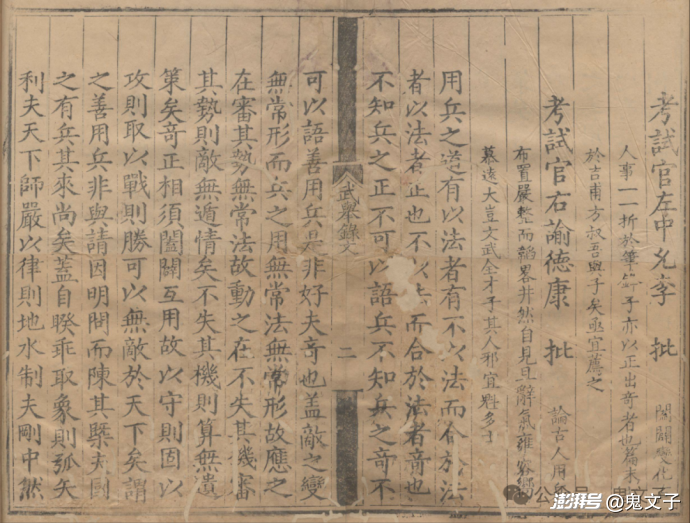 考試官左中允李 批 闔闢變化
人事一一折於筆端子亦以正出奇者也篇末
於吉甫方叔吾與子矣亟宜薦之
考試官右諭德康 批 論古人用兵
布置嚴整而韜畧井然自見且辭氣雍容
慕遠大豈文武全才予其人邪宜魁多士
用兵之道有以法者有不以法而合於法
者以法者正也不以法而合於法者竒也
不知兵之正不可以語兵不知兵之竒不
武舉錄文 二
可以語善用兵是非好夫竒也盖敵之變
無常形而兵之用無常法無常形故應之
在審其勢無常法故動之在不失其幾審
其勢則敵無遁情矣不失其機則算無遺
策矣竒正相須闔闢互用故以守則固以
攻則取以戰則勝可以無敵於天下矣謂
之善用兵非與請因明問而陳其槩夫國
之有兵其來尚矣蓋自睽乖取象則弧矢
利夫天下師嚴以律則地水制夫剛中然
澎湃号@鬼文子